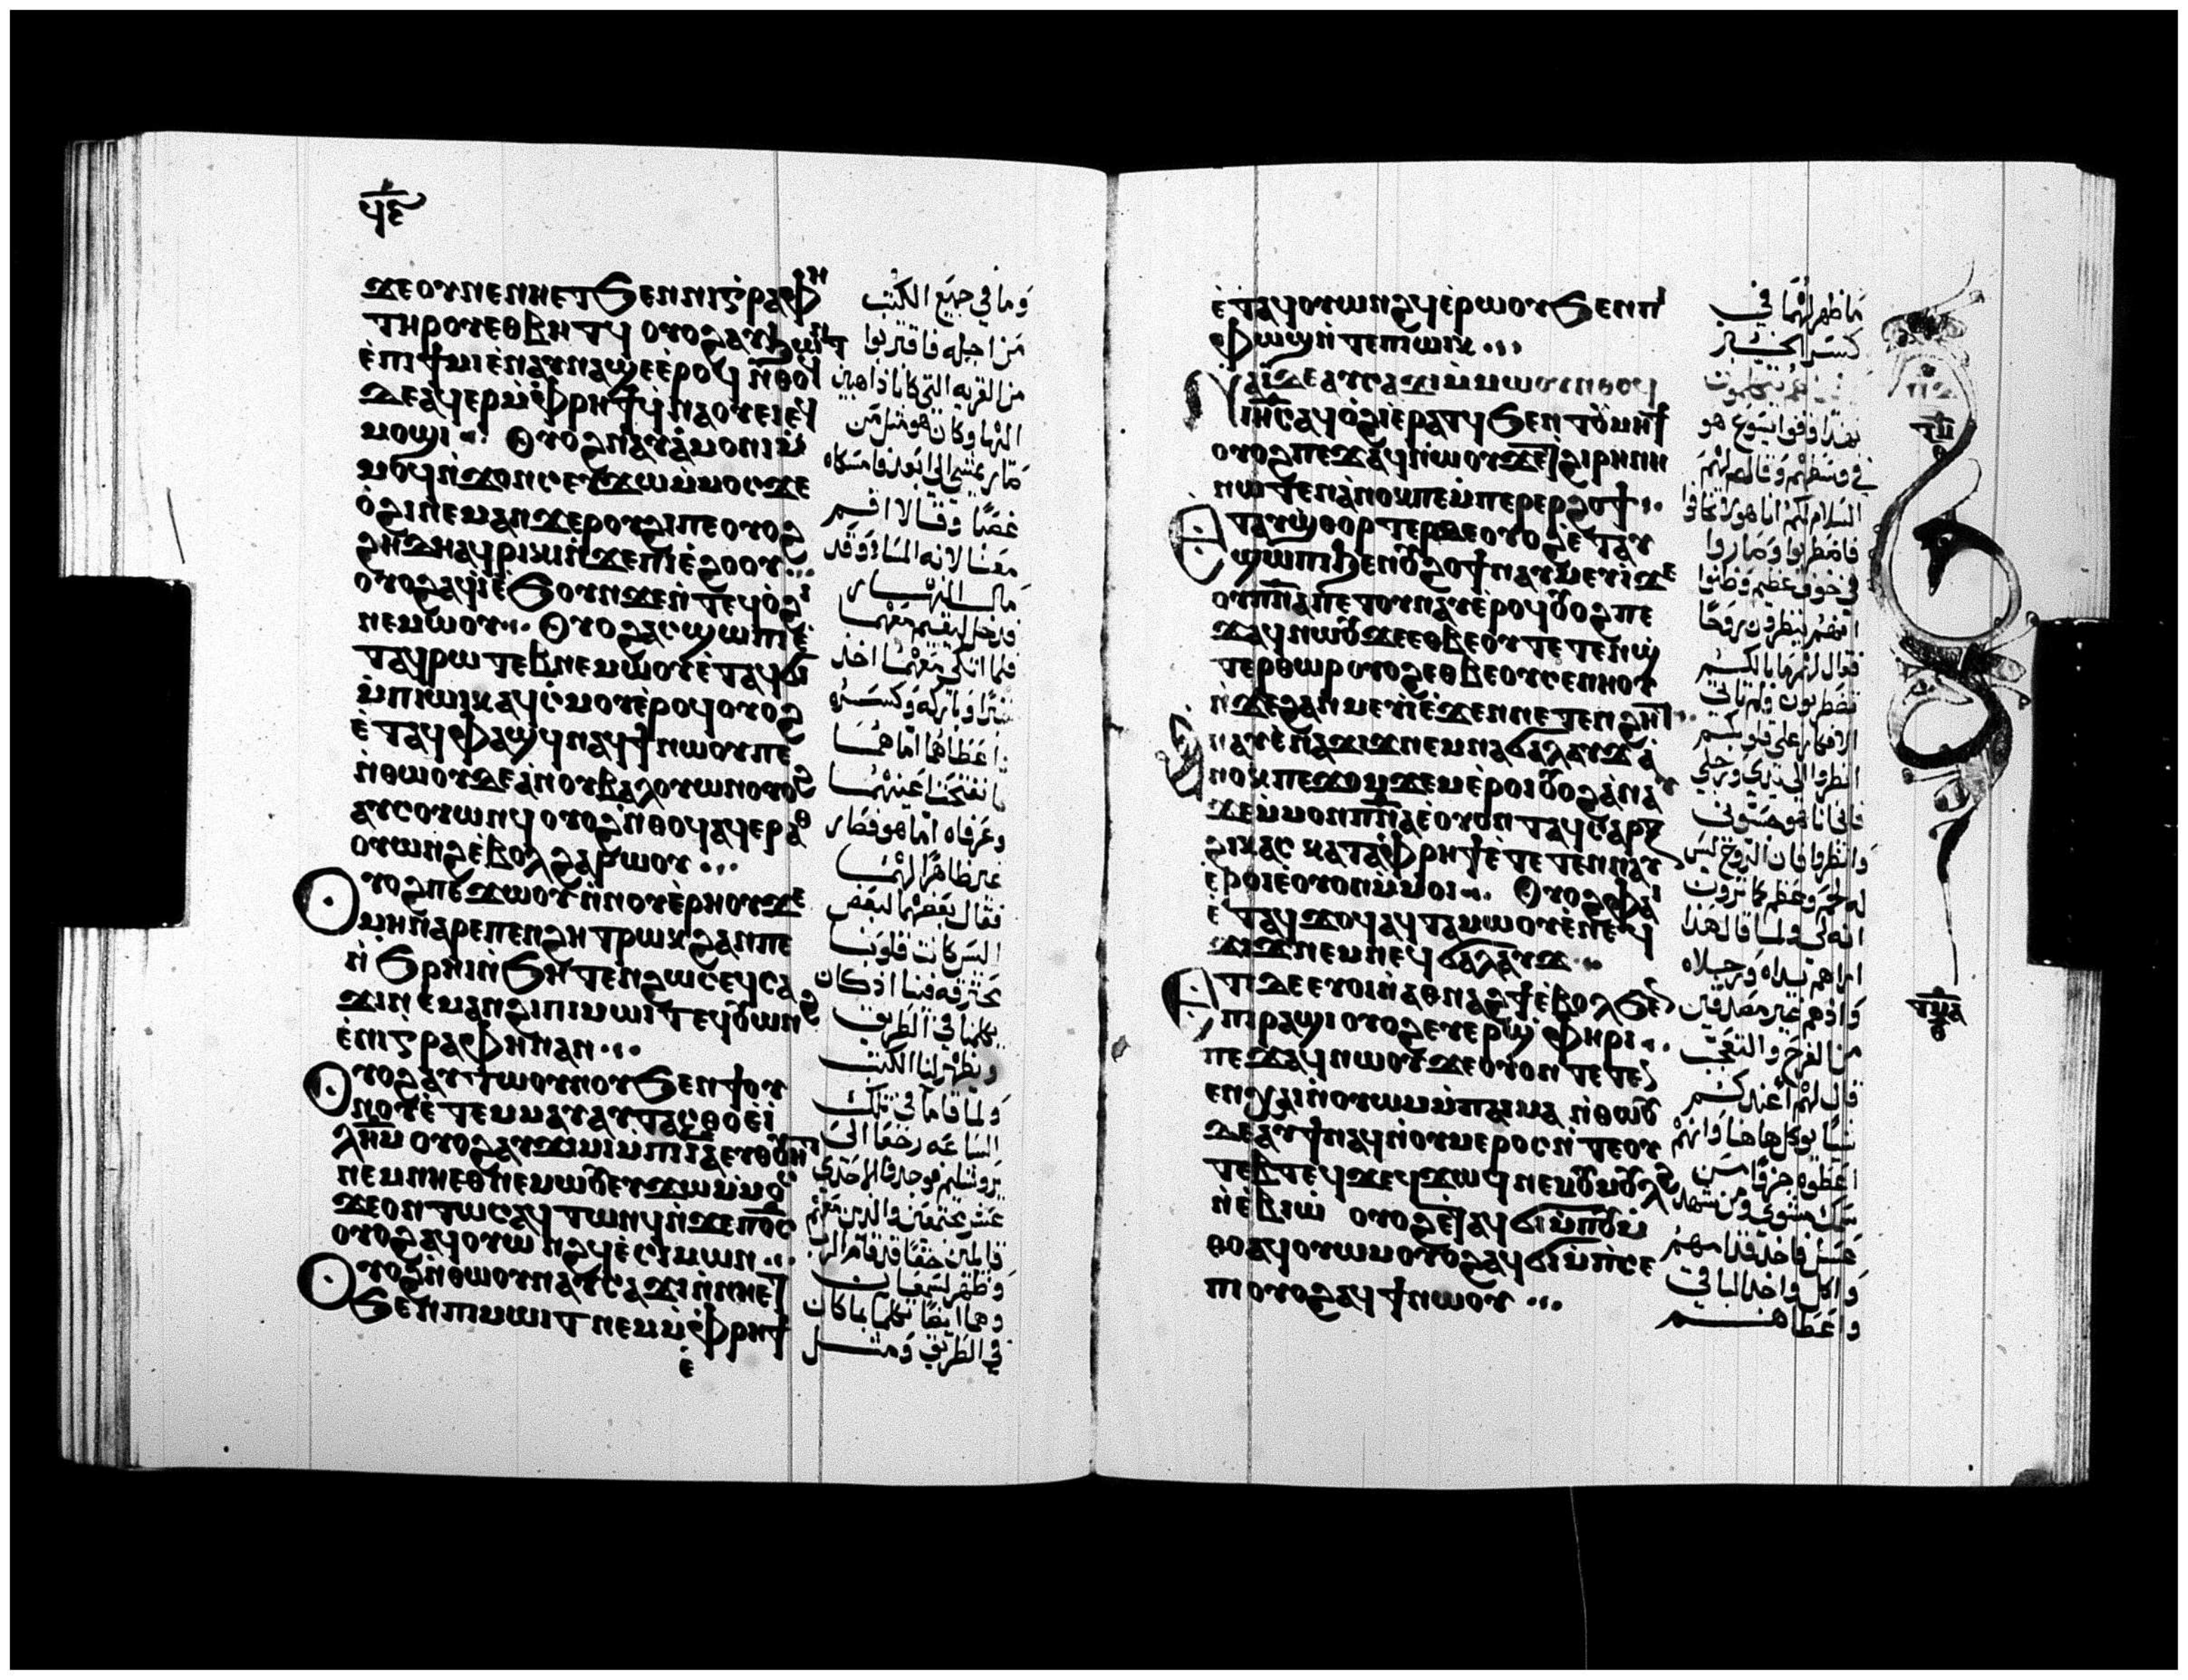 ϥⲉ
ϫⲉⲟⲩⲛⲉⲛⲏⲉⲧϧⲉⲛⲛⲓⲅⲣⲁⲫⲏ
ⲧⲏⲣⲟⲩⲉⲑⲃⲏⲧϥ ⲟⲩⲟϩⲁⲩϧⲱⲛⲧ
ⲉ̀ⲡⲓϯⲙⲓⲉ̀ⲛⲁⲩⲛⲁϣⲉⲉ̀ⲣⲟϥ ⲛ̀ⲑⲟϥ
ⲇⲉⲁϥⲉⲣⲙ̀ⲫⲣⲏϯϥⲛⲁⲟⲩⲉⲓⲉϥ
ⲙⲟϣⲓ ⲟⲩⲟϩⲛⲁⲩⲁ̀ⲙⲟⲛⲓⲙ̀
ⲙⲟϥⲛ̀ϫⲟⲛⲥⲉⲩϫⲱⲙ̀ⲙⲟⲥϫⲉ
ⲟ̀ϩⲓⲛⲉⲙⲁⲛϫⲉⲣⲟⲩϩⲓⲡⲉⲟⲩⲟϩ
ϩⲏⲇⲏⲁϥⲣⲓⲕⲓⲛ̀ϫⲉⲡⲓⲉ̀ϩⲟⲟⲩ
ⲟⲩⲟϩⲁϥⲓ̀ⲉ̀ϧⲟⲩⲛϫⲉⲛ̀ⲧⲉϥⲟ̀ϩⲓ
ⲛⲉⲙⲱⲟⲩ ⲟⲩⲟϩⲁⲥϣⲱⲡⲓⲉ̀
ⲧⲁϥⲣⲱⲧⲉⲃⲛⲉⲙⲱⲟⲩⲉ̀ⲧⲁϥϭⲓ
ⲙ̀ⲡⲓⲱⲓⲕⲁϥⲥ̀ⲙⲟⲩⲉ̀ⲣⲟϥⲟⲩⲟϩ
ⲉ̀ⲧⲁϥⲫⲁϣϥⲛⲁϥϯⲛⲱⲟⲩⲡⲉ
ⲛ̀ⲑⲱⲟⲩⲇⲉⲁ̀ⲛⲟⲩⲃⲁⲗⲟⲩⲱⲛⲟⲩⲟϩ
ⲁⲩⲥⲟⲩⲱⲛϥ ⲟⲩⲟϩⲛ̀ⲑⲟϥⲁϥⲉⲣⲁⲑ
ⲟⲩⲱⲛϩⲉ̀ⲃⲟⲗϩⲁⲣⲱⲟⲩ
ⲟⲩⲟϩⲡⲉϫⲱⲟⲩⲛ̀ⲛⲟⲩⲉ̀ⲣⲏⲟⲩϫⲉ
ⲙⲏⲛ̀ⲁⲣⲉⲡⲉⲛϩⲏⲧⲣⲱⲕϩⲁⲛⲡⲉ
ⲛ̀ϧⲣⲏⲓⲛ̀ϧⲏⲧⲉⲛϩⲱⲥⲉϥⲥⲁ
ϫⲓⲛⲉⲙⲁⲛϩⲓⲡⲓⲙⲱⲓⲧⲉϥⲟⲩⲱⲛϩ
ⲉ̀ⲛⲓⲅⲣⲁⲫⲏⲛⲁⲛ
ⲟⲩⲟϩⲁⲩⲧⲱⲟⲩⲛⲟⲩϧⲉⲛϯⲟⲩ
ⲛⲟⲩⲉ̀ⲧⲉⲙⲙⲁⲩⲁⲩⲧⲁⲥⲑⲟⲉⲓ̀
ⲗⲏⲙ ⲟⲩⲟϩⲁⲩϫⲓⲙⲓⲙⲡⲓⲓ̅ⲁ̅ⲉⲩⲑⲟⲩⲏⲧ
ⲛⲉⲙⲛⲏⲉⲑⲛⲉⲙⲱⲟⲩⲉⲩϫⲱⲙ̀ⲙⲟⲥ
ϫⲉⲟⲛⲧⲱⲥⲁϥⲧⲱⲛϥⲛ̀ϫⲉⲡⲟ̅ⲥ̅
ⲟⲩⲟϩⲁϥⲟⲩⲱⲛϩϥⲉ̀ⲥⲓⲙⲱⲛ
ⲟⲩⲟϩⲛ̀ⲑⲱⲟⲩⲛⲁⲩⲥⲁϫⲓⲛ̀ⲛⲏⲉⲧ
ϧⲉⲛⲡⲓⲙⲱⲓⲧ ⲛⲉⲙⲙ̀ⲫⲣⲏϯ
ⲉ̀
وما في جميع الكتب
من اجله فاقتربوا
من القريه التي كانا ذاهبين
اليها وكان هو مثل من
صاير يمشي الى ابعد فامسكاه
غصبًا وقالا اقم
معنا لانه المساء وقد
مال النهار
فدخل ليقيم معهما
فلما اتكى معهما اخذ
خبزًا وباركه وكسره
واعطاهما اما هما
فانفتحت اعينهما
وعرفاه اما هو فصار
غير ظاهرًا لهما
فقال بعضهما لبعض
اليس كانت قلوبنا
محترقه فينا اذ كان
يكلمنا في الطريق
ويظهر لنا الكتب
ولما قاما في تلك
الساعه رجعا الى
يروشليم فوجدا الاحدى
عشر مجتمعين والذين معهم
قايلين حقًا قد قام الرب
وظهر لسيمان
وهما ايضًا تكلما بما كان
في الطريق ومثل
ⲉ̀ⲧⲁϥⲟⲩⲱⲛϩϥⲉ̀ⲣⲱⲟⲩϧⲉⲛⲡⲓ
ⲫⲱϣⲛ̀ⲧⲉⲡⲓⲱⲓⲕ
ⲛⲁⲓ̈ⲇⲉⲁⲩⲥⲁϫⲓⲙ̀ⲙⲱⲟⲩⲛ̀ⲑⲟϥ
ⲓⲏ̅ⲥ̅ⲁϥⲟ̀ϩⲓⲉⲣⲁⲧϥϧⲉⲛⲧⲟⲩⲙⲏϯ
ⲟⲩⲟϩⲡⲉϫⲁϥⲛ̀ⲱⲟⲩϫⲉϯϩⲓⲣⲏⲛⲏ
ⲛⲱⲧⲉⲛⲁ̀ⲛⲟⲕⲡⲉⲙ̀ⲡⲉⲣⲉⲣϩⲟϯ
ⲉⲧⲁⲩϣ̀ⲑⲟⲣⲧⲉⲣⲇⲉⲟⲩⲟϩⲉ̀ⲧⲁⲩ
ϣⲱⲡⲓϧⲉⲛⲟⲩϩⲟϯⲛⲁⲩⲙⲉⲩⲓ̀ϫⲉ
ⲟⲩⲡ̅ⲛ̅ⲁ̅ⲡⲉⲧⲟⲩⲛⲁⲩⲉ̀ⲣⲟϥⲟⲩⲟϩⲡⲉ
ϫⲁϥⲛⲱⲟⲩϫⲉⲉⲑⲃⲉⲟⲩⲧⲉⲧⲉⲛϣ
ⲧⲉⲣⲑⲱⲣⲟⲩⲟϩⲉⲑⲃⲉⲟⲩⲥⲉⲛⲏⲟⲩ
ⲛ̀ϫⲉϩⲁⲛⲙⲉⲩⲓ̀ⲉ̀ϫⲉⲛⲛⲉⲧⲉⲛϩⲏⲧ
ⲛⲁⲩⲉ̀ⲛⲁϫⲓϫⲛⲉⲙⲛⲁϭⲁⲗⲁⲩϫϫⲉⲁ̀
ⲛⲟⲕⲡⲉϫⲟⲙϫⲉⲙⲉ̀ⲣⲟⲓⲟⲩⲟϩⲁ̀ⲛⲁⲩ
ϫⲉⲙ̀ⲙⲟⲛⲡ̅ⲛ̅ⲁ̅ⲉⲟⲩⲟⲛⲧⲁϥⲥⲁⲣⲝ
ϩⲓⲕⲁⲥ ⲕⲁⲧⲁⲫⲣⲏϯⲉ̀ⲧⲉⲧⲉⲛⲛⲁⲩ
ⲉ̀ⲣⲟⲓⲉⲟⲩⲟⲛⲙ̀ⲙⲟⲓ ⲟⲩⲟϩⲫⲁⲓ
ⲉ̀ⲧⲁϥϫⲟϥⲁϥⲧⲁⲙⲱⲟⲩⲉ̀ⲛⲉϥ
ϫⲓϫⲛⲉⲙⲛⲉϥϭⲁⲗⲁⲩϫ
ⲉⲧⲓⲇⲉⲉⲩⲟⲓⲛ̀ⲁⲑⲛⲁϩϯⲉ̀ⲃⲟⲗϧⲉⲛ
ⲡⲓⲣⲁϣⲓⲟⲩⲟϩⲉⲩⲉⲣϣ̀ⲫⲏⲣⲓ
ⲡⲉϫⲁϥⲛⲱⲟⲩϫⲉⲟⲩⲟⲛⲧⲉⲧⲉ
ⲉⲛϩ̀ⲗⲓⲛ̀ⲟⲩⲱⲙⲙ̀ⲡⲁⲓⲙⲁ ⲛ̀ⲑⲱⲟⲩ
ⲇⲉⲁⲩϯⲛⲁϥⲛ̀ⲟⲩⲙⲉⲣⲟⲥⲛ̀ⲧⲉⲟⲩ
ⲧⲉⲃⲧⲉϥϫⲉϥϫⲱϥⲛⲉⲙⲟⲩⲙⲟⲩⲗϩ
ⲛ̀ⲉⲃⲓⲱ̀ ⲟⲩⲟϩⲉⲧⲁϥϭⲓⲙ̀ⲡⲟⲩⲙ̀
ⲑⲟⲁϥⲟⲩⲱⲙⲟⲩⲟϩⲁϥϭⲓⲙ̀ⲡⲥⲉ
ⲡⲓⲟⲩⲟϩⲁϥϯⲛⲱⲟⲩ
ما ظهر لهما في
كسر الخبز
بهذا وقفوا يسوع هو
في وسطهم وقال لهم
السلام لكم انا هو لا تخافوا
فاضطربوا وصاروا
في خوف عظيم وظنوا
انهم ينظرون روحًا
فقال لهم ما بالكم
تضطربون ولم تاتي
الافكار على قلوبكم
انظروا الى يدي ورجلي
فاني انا هو جسوني
وانظروا فان الروح ليس
له لحم وعظم كما ترون
انه لي ولما قال هذا
اراهم يداه ورجلاه
واذهم غير مصدقين
من الفرح والتعجب
قال لهم أعندكم
شيا يوكل هاهنا وانهم
اعطوه جزءًا من
سمك مشوي ومن شهد
عسل فاخذ قدامهم
واكل واخذ الباقي
واعطاهم